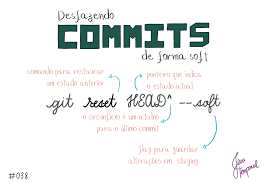 Desfazendo
COMMITS
de forma soft
comando para restaurar
um estado anterior
ponteiro que indica
o estado atual
git reset HEAD^ --soft
o circunflexo é um atalho
para o último commit
flag para guardar
alterações em staging
#038